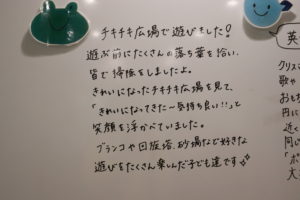 チキチキ広場で遊びました！
遊ぶ前にたくさんの落ち葉を拾い、
皆で掃除をしましたよ。
きれいになったチキチキ広場を見て、
「きれいになってきた～気持ち良い!!」と
笑顔を浮かべていました。
ブランコや回旋塔、砂場など好きな
遊びをたくさん楽しんだ子ども達です☆
英
クリスマ
歌や
おもち
円に
近く
同じ
「ポ
大